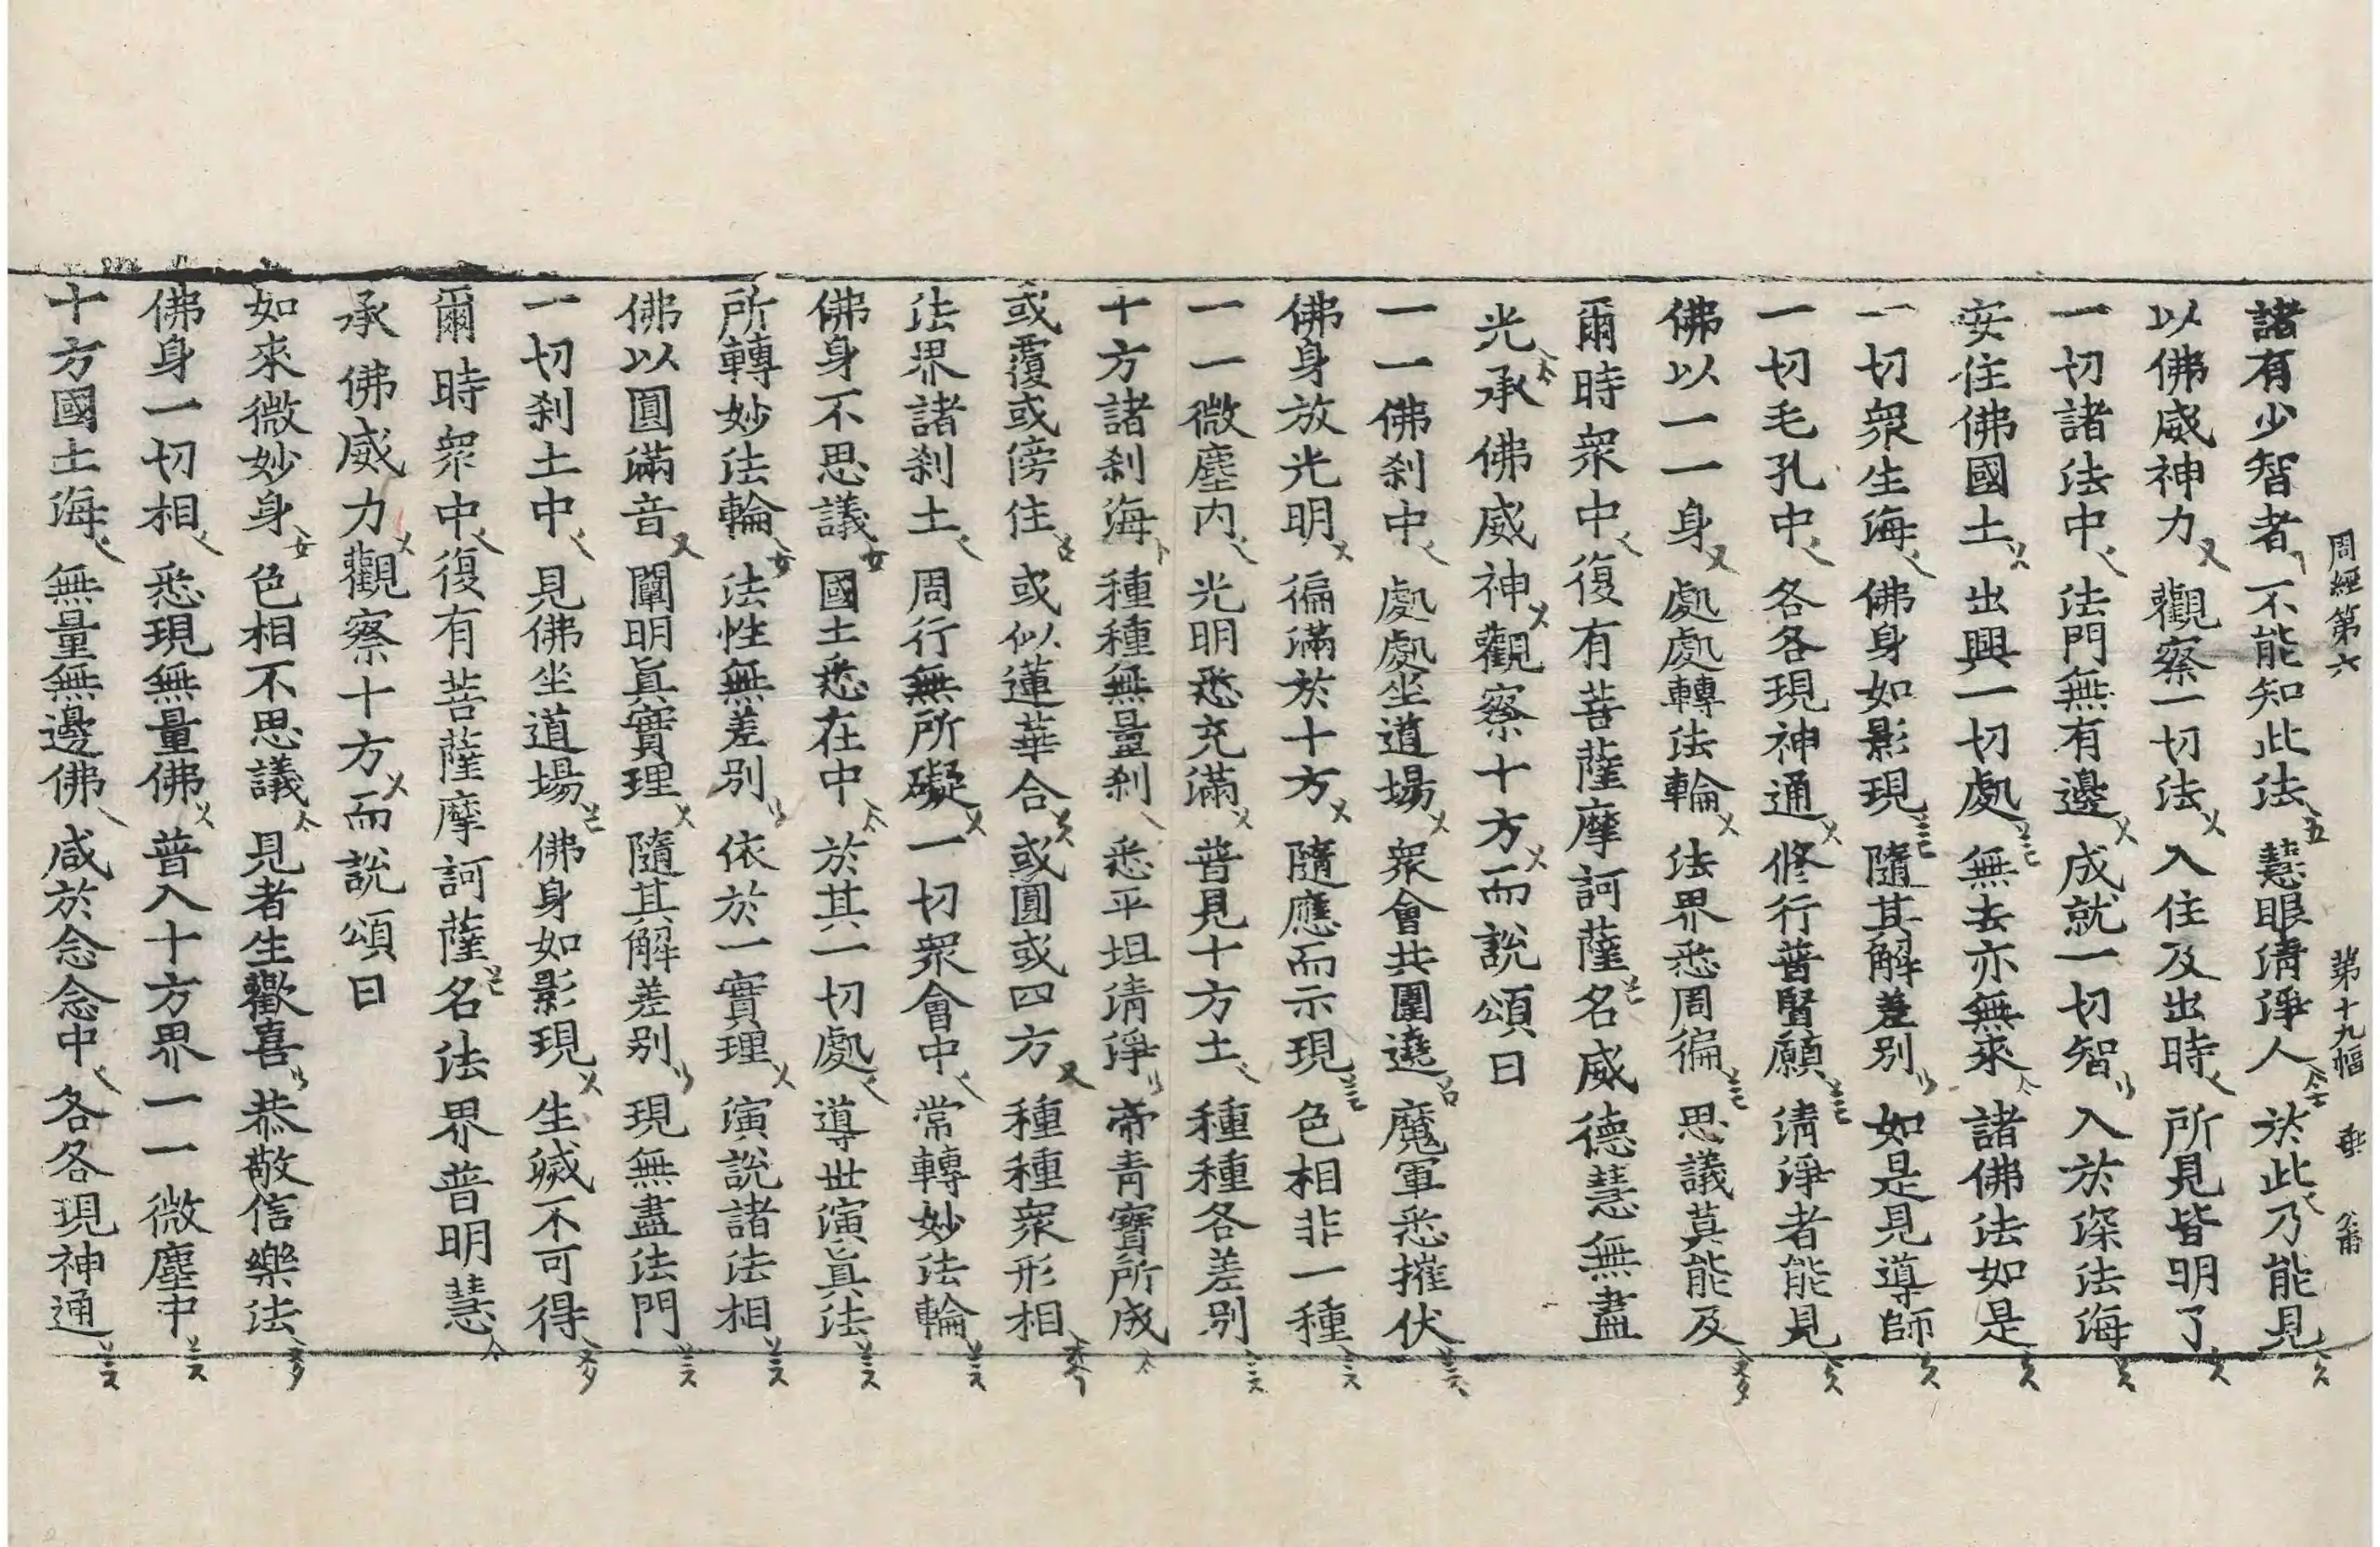 周經第六 第十九幅 垂
諸有少智者 不能知此法 慧眼清淨人 於此乃能見
以佛威神力 觀察一切法 入住及出時 所見皆明了
一切諸法中 法門無有邊 成就一切智 入於深法海
安住佛國土 出興一切處 無去亦無來 諸佛法如是
一切衆生海 佛身如影現 隨其解差別 如是見導師
一切毛孔中 各各現神通 修行普賢願 清淨者能見
佛以一一身 處處轉法輪 法界悉周徧 思議莫能及
爾時衆中復有菩薩摩訶薩名威德慧無盡
光承佛威神觀察十方而說頌曰
一一佛刹中 處處坐道場 衆會共圍遶 魔軍悉摧伏
佛身放光明 徧滿於十方 隨應而示現 色相非一種
一一微塵內 光明悉充滿 普見十方土 種種各差別
十方諸刹海 種種無量刹 悉平坦清淨 帝青寶所成
或覆或傍住 或似蓮華合 或圓或四方 種種衆形相
法界諸刹土 周行無所礙 一切衆會中 常轉妙法輪
佛身不思議 國土悉在中 於其一切處 導世演眞法
所轉妙法輪 法性無差別 依於一實理 演說諸法相
佛以圓滿音 闡明眞實理 隨其解差別 現無盡法門
一切刹土中 見佛坐道場 佛身如影現 生滅不可得
爾時衆中復有菩薩摩訶薩名法界普明慧
承佛威力觀察十方而說頌曰
如來微妙身 色相不思議 見者生歡喜 恭敬信樂法
佛身一切相 悉現無量佛 普入十方界 一一微塵中
十方國土海 無量無邊佛 咸於念念中 各各現神通